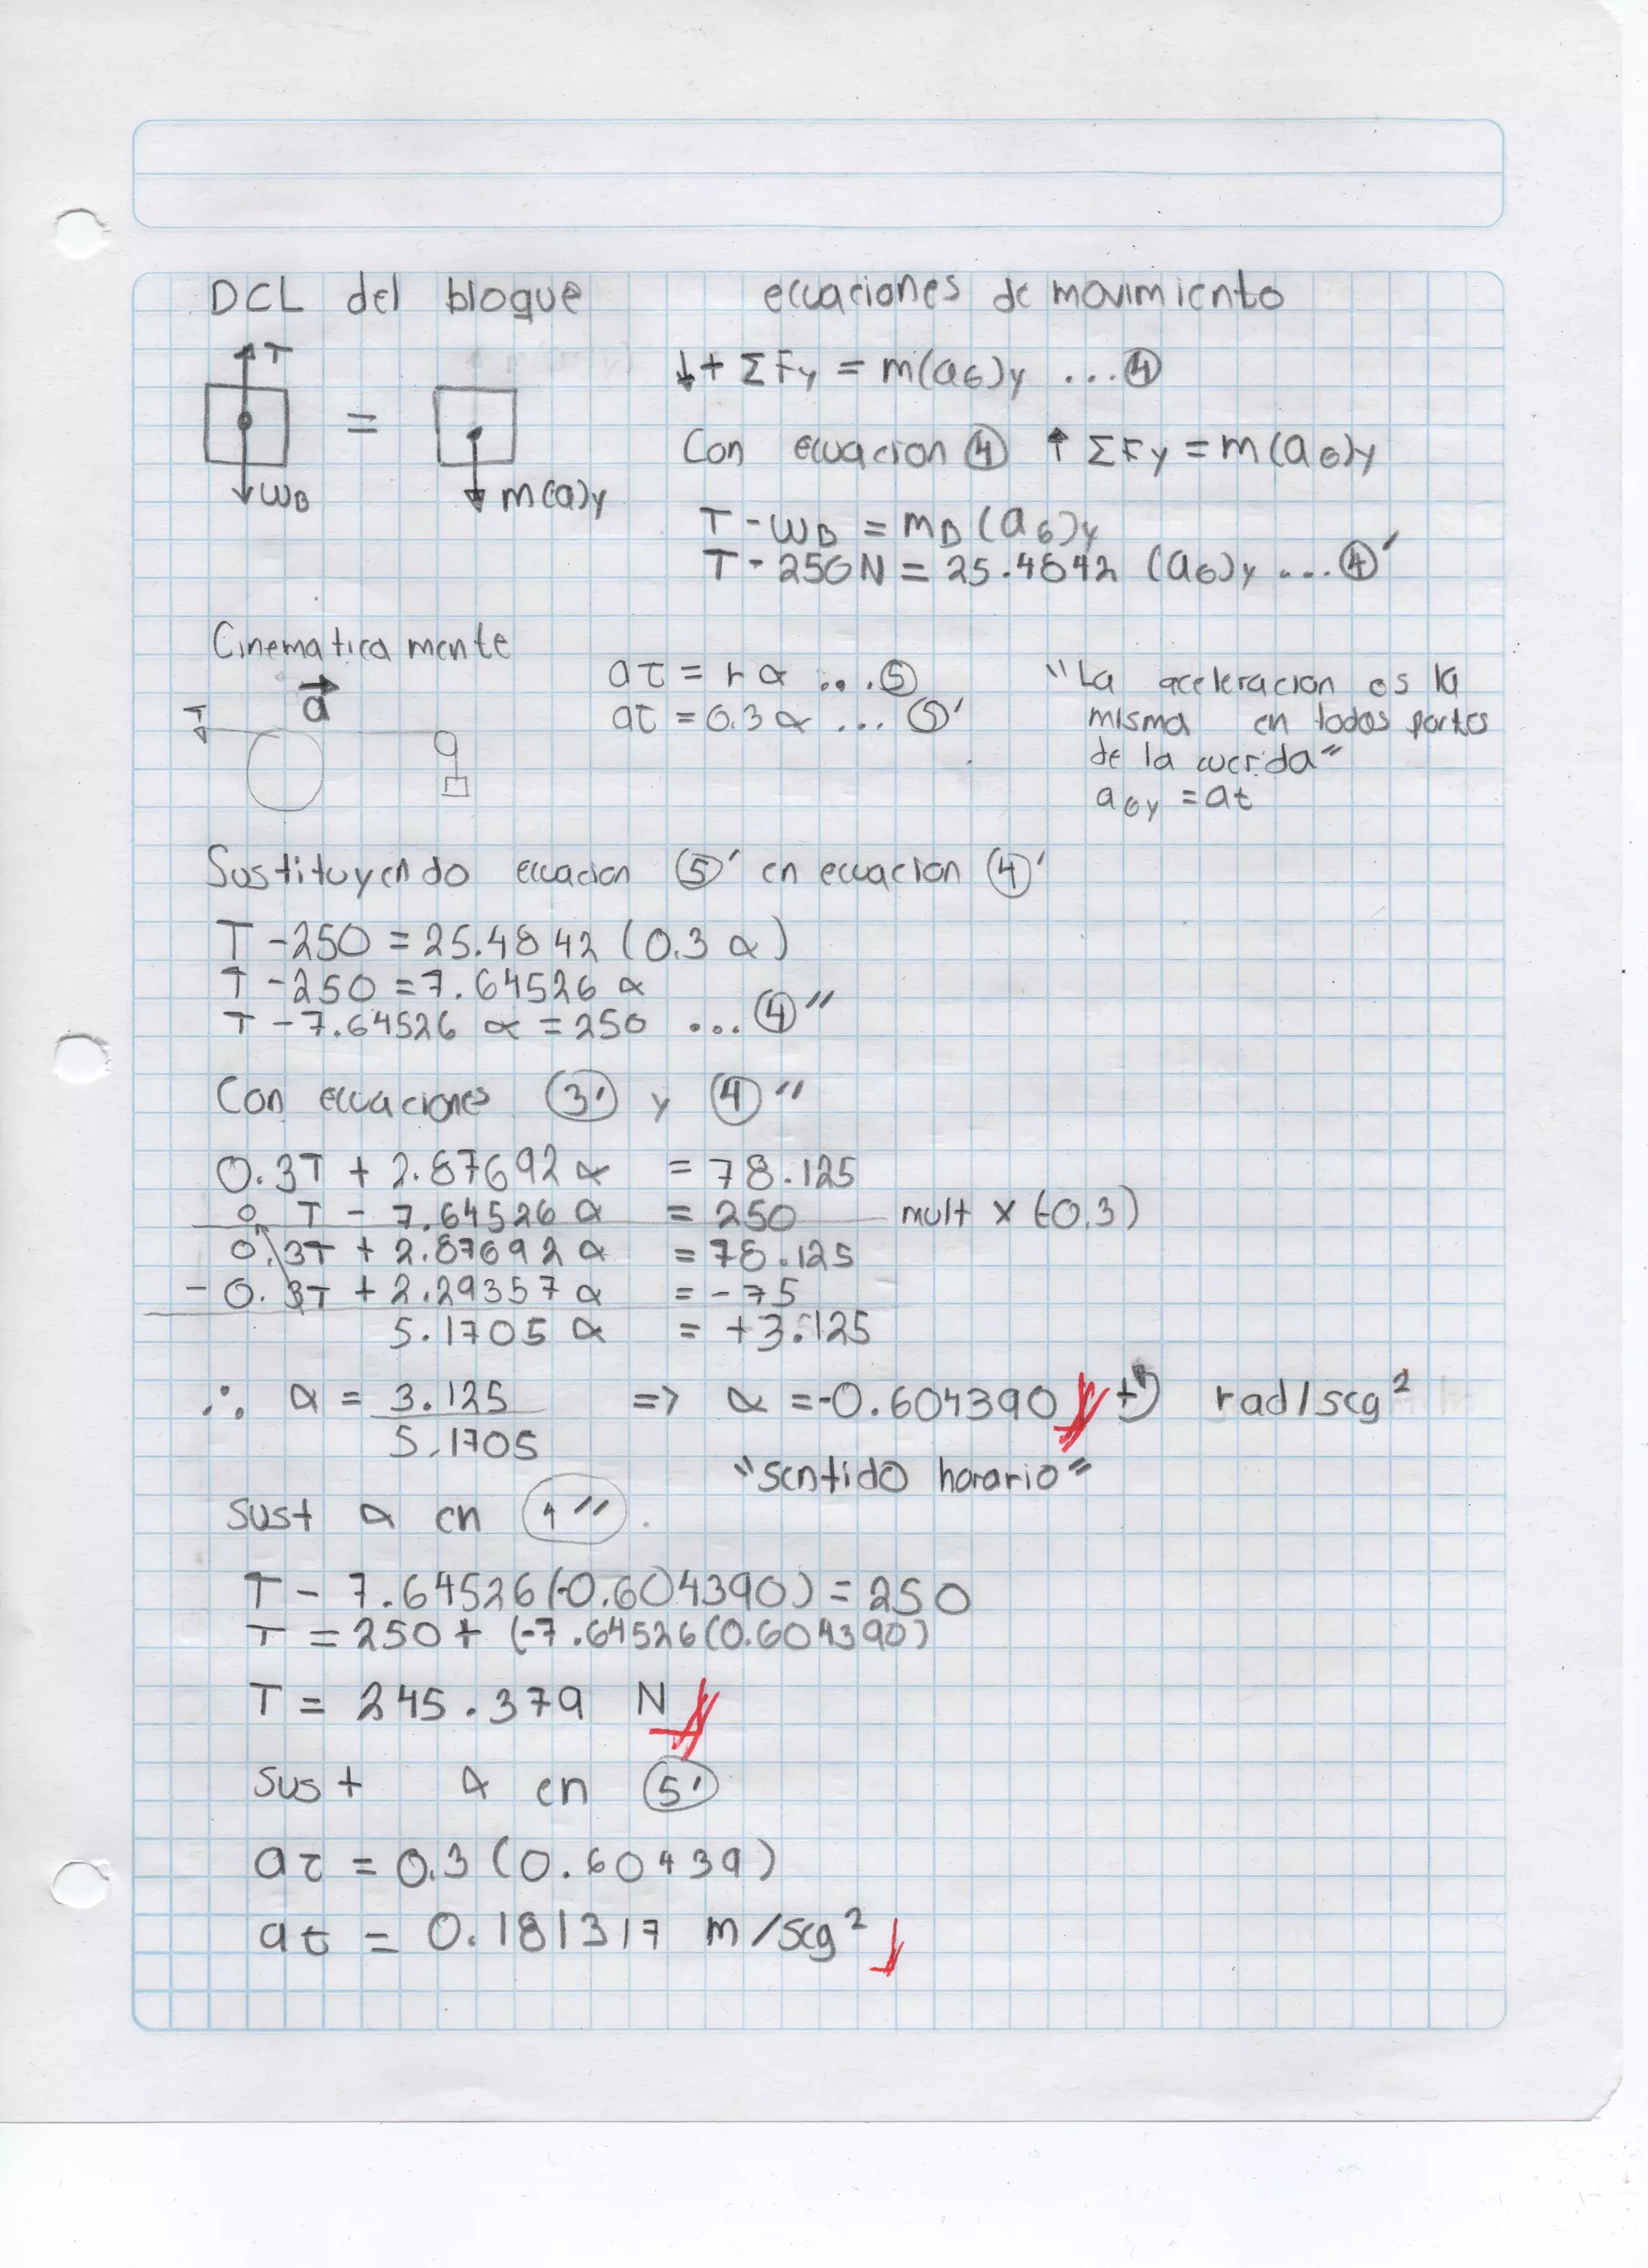 DCL del bloque
ecuaciones de movimiento
T
=
WB
m(a)y
↓+ ΣFy = m(aG)y ...④
Con ecuacion ④ ↑ ΣFy = m(aG)y
T - WB = mB (aG)y
T - 250N = 25.4842 (aG)y ...④'
Cinematicamente
a
T
aτ = r α ...⑤
aτ = 0.3 α ... ⑤'
"La aceleracion es la
misma en todas partes
de la cuerda"
aGy = at
Sustituyendo ecuacion ⑤' en ecuacion ④'
T - 250 = 25.4842 (0.3 α)
T - 250 = 7.64526 α
T - 7.64526 α = 250 ...④''
Con ecuaciones ③' y ④''
0.3T + 2.87692 α = 78.125
T - 7.64526 α = 250 mult x (-0.3)
0.3T + 2.87692 α = 78.125
- 0.3T + 2.29357 α = -75
0
5.1705 α = +3.125
∴ α = 3.125 / 5.1705 => α = -0.604390 +↻ rad/seg²
"sentido horario"
sust α en ④''
T - 7.64526(-0.604390) = 250
T = 250 + (-7.64526(0.604390)
T = 245.379 N
sust α en ⑤'
aτ = 0.3 (0.60439)
at = 0.181317 m/seg²